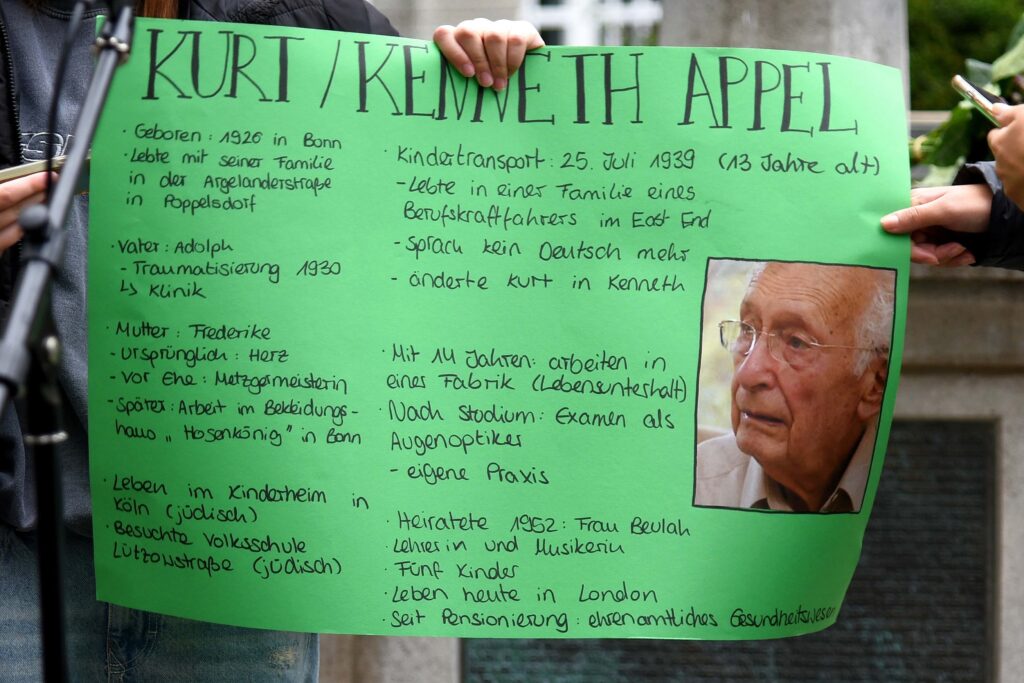 KURT / KENNETH APPEL
· Geboren : 1926 in Bonn
· Lebte mit seiner Familie
in der Argelanderstraße
in Poppelsdorf
· Vater : Adolph
- Traumatisierung 1930
↳ Klinik
· Mutter : Frederike
- ursprünglich : Herz
- Vor Ehe : Metzgermeisterin
- Später : Arbeit im Bekleidungs-
haus „Hosenkönig" in Bonn
· Leben im Kinderheim in
Köln (jüdisch)
· Besuchte Volksschule
Lützowstraße (jüdisch)
· Kindertransport : 25. Juli 1939 (13 Jahre alt)
- Lebte in einer Familie eines
Berufskraftfahrers im East End
- Sprach kein Deutsch mehr
- änderte Kurt in Kenneth
· Mit 14 Jahren: arbeiten in
einer Fabrik (Lebensunterhalt)
· Nach Studium : Examen als
Augenoptiker
- eigene Praxis
· Heiratete 1952 : Frau Beulah
· Lehrerin und Musikerin
· Fünf Kinder
· Leben heute in London
· Seit Pensionierung : ehrenamtliches Gesundheitswesen